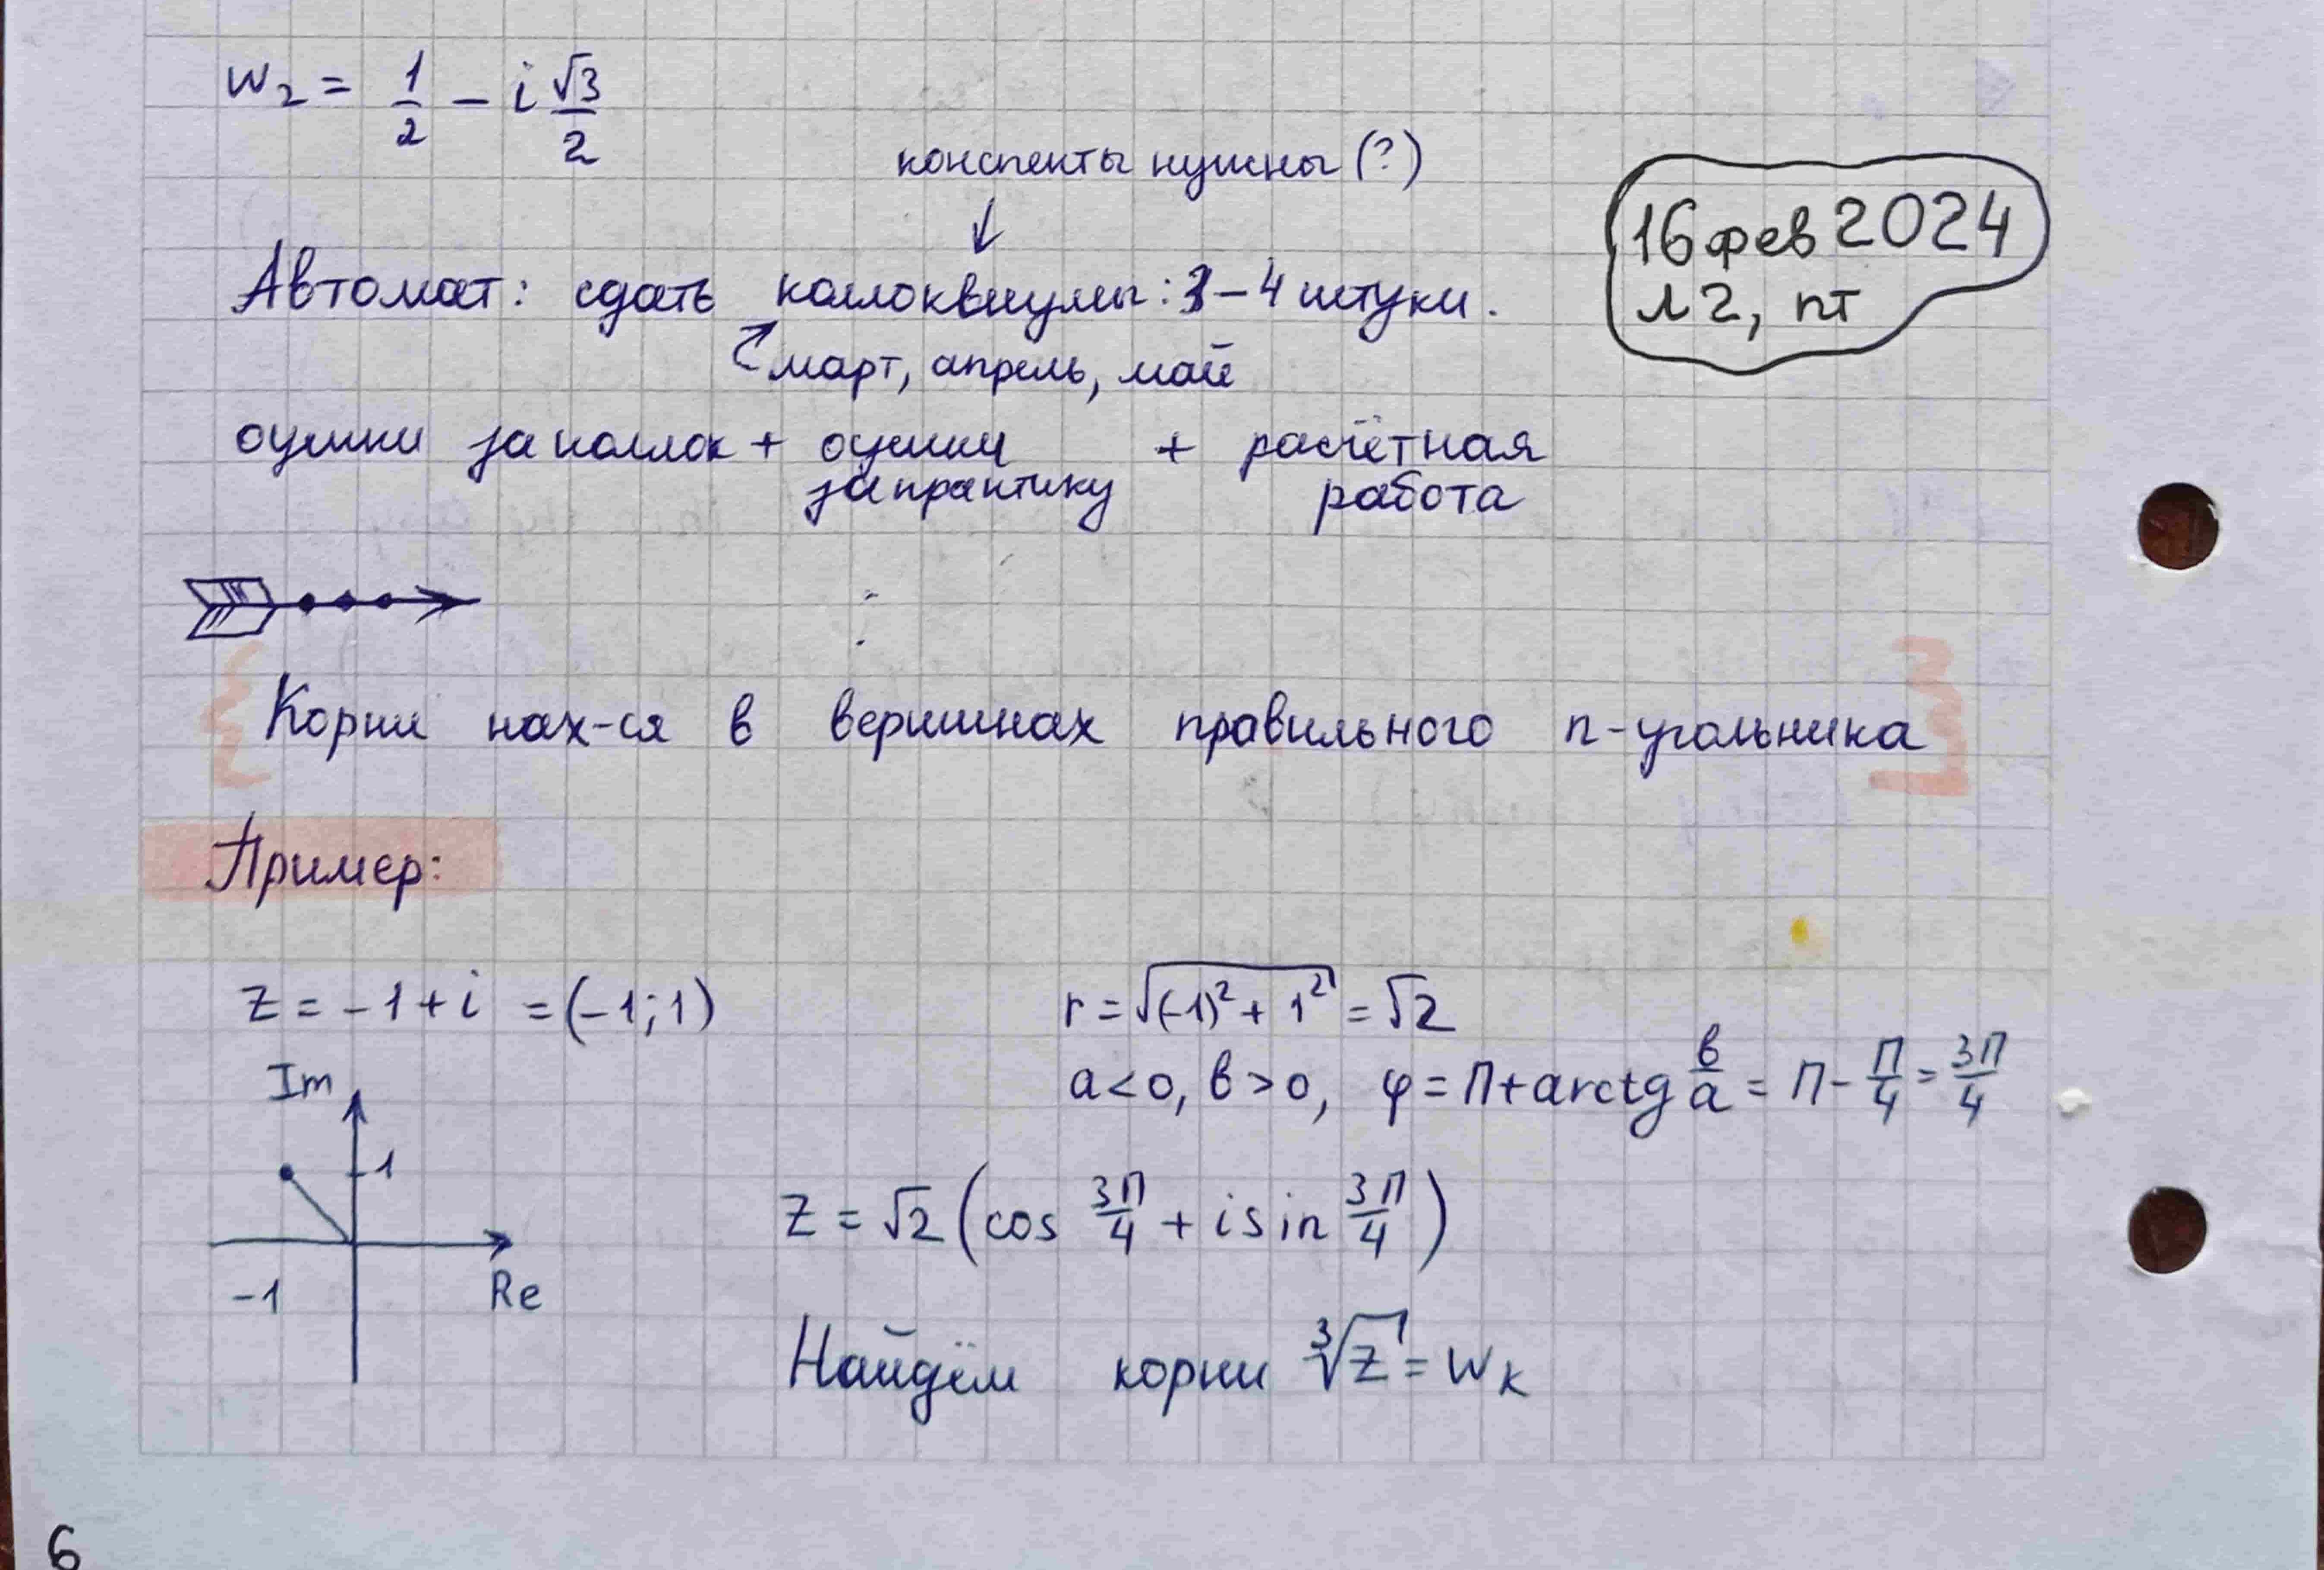 w₂ = 1/2 - i √3/2
конспекты нужны (?)
↓
16 фев 2024
л 2, пт
Автомат: сдать коллоквиумы: 3-4 штуки.
март, апрель, май
оценки за коллок + оценки за практику + расчётная работа
Корни нах-ся в вершинах правильного n-угольника
Пример:
z = -1 + i = (-1; 1)
r = √((-1)² + 1²) = √2
a < 0, b > 0, φ = π + arctg b/a = π - π/4 = 3π/4
Im
1
-1
Re
z = √2 (cos 3π/4 + i sin 3π/4)
Найдём корни ³√z = wₖ
6